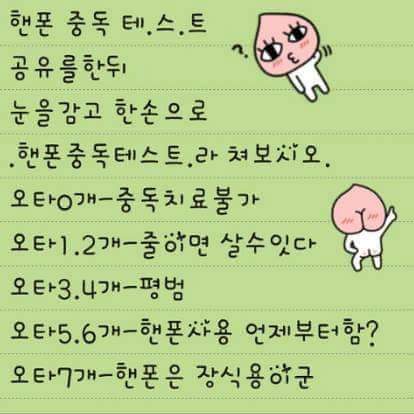 핸폰 중독 테.스.트
?.
공유를한뒤
눈을감고 한손으로
.핸폰중독테스트.라 쳐보시오.
오타0개-중독치료불가
오타1.2개-줄이면 살수잇다
오타3.4개-평범
오타5.6개-핸폰사용 언제부터함?
오타7개-핸폰은 장식용이군